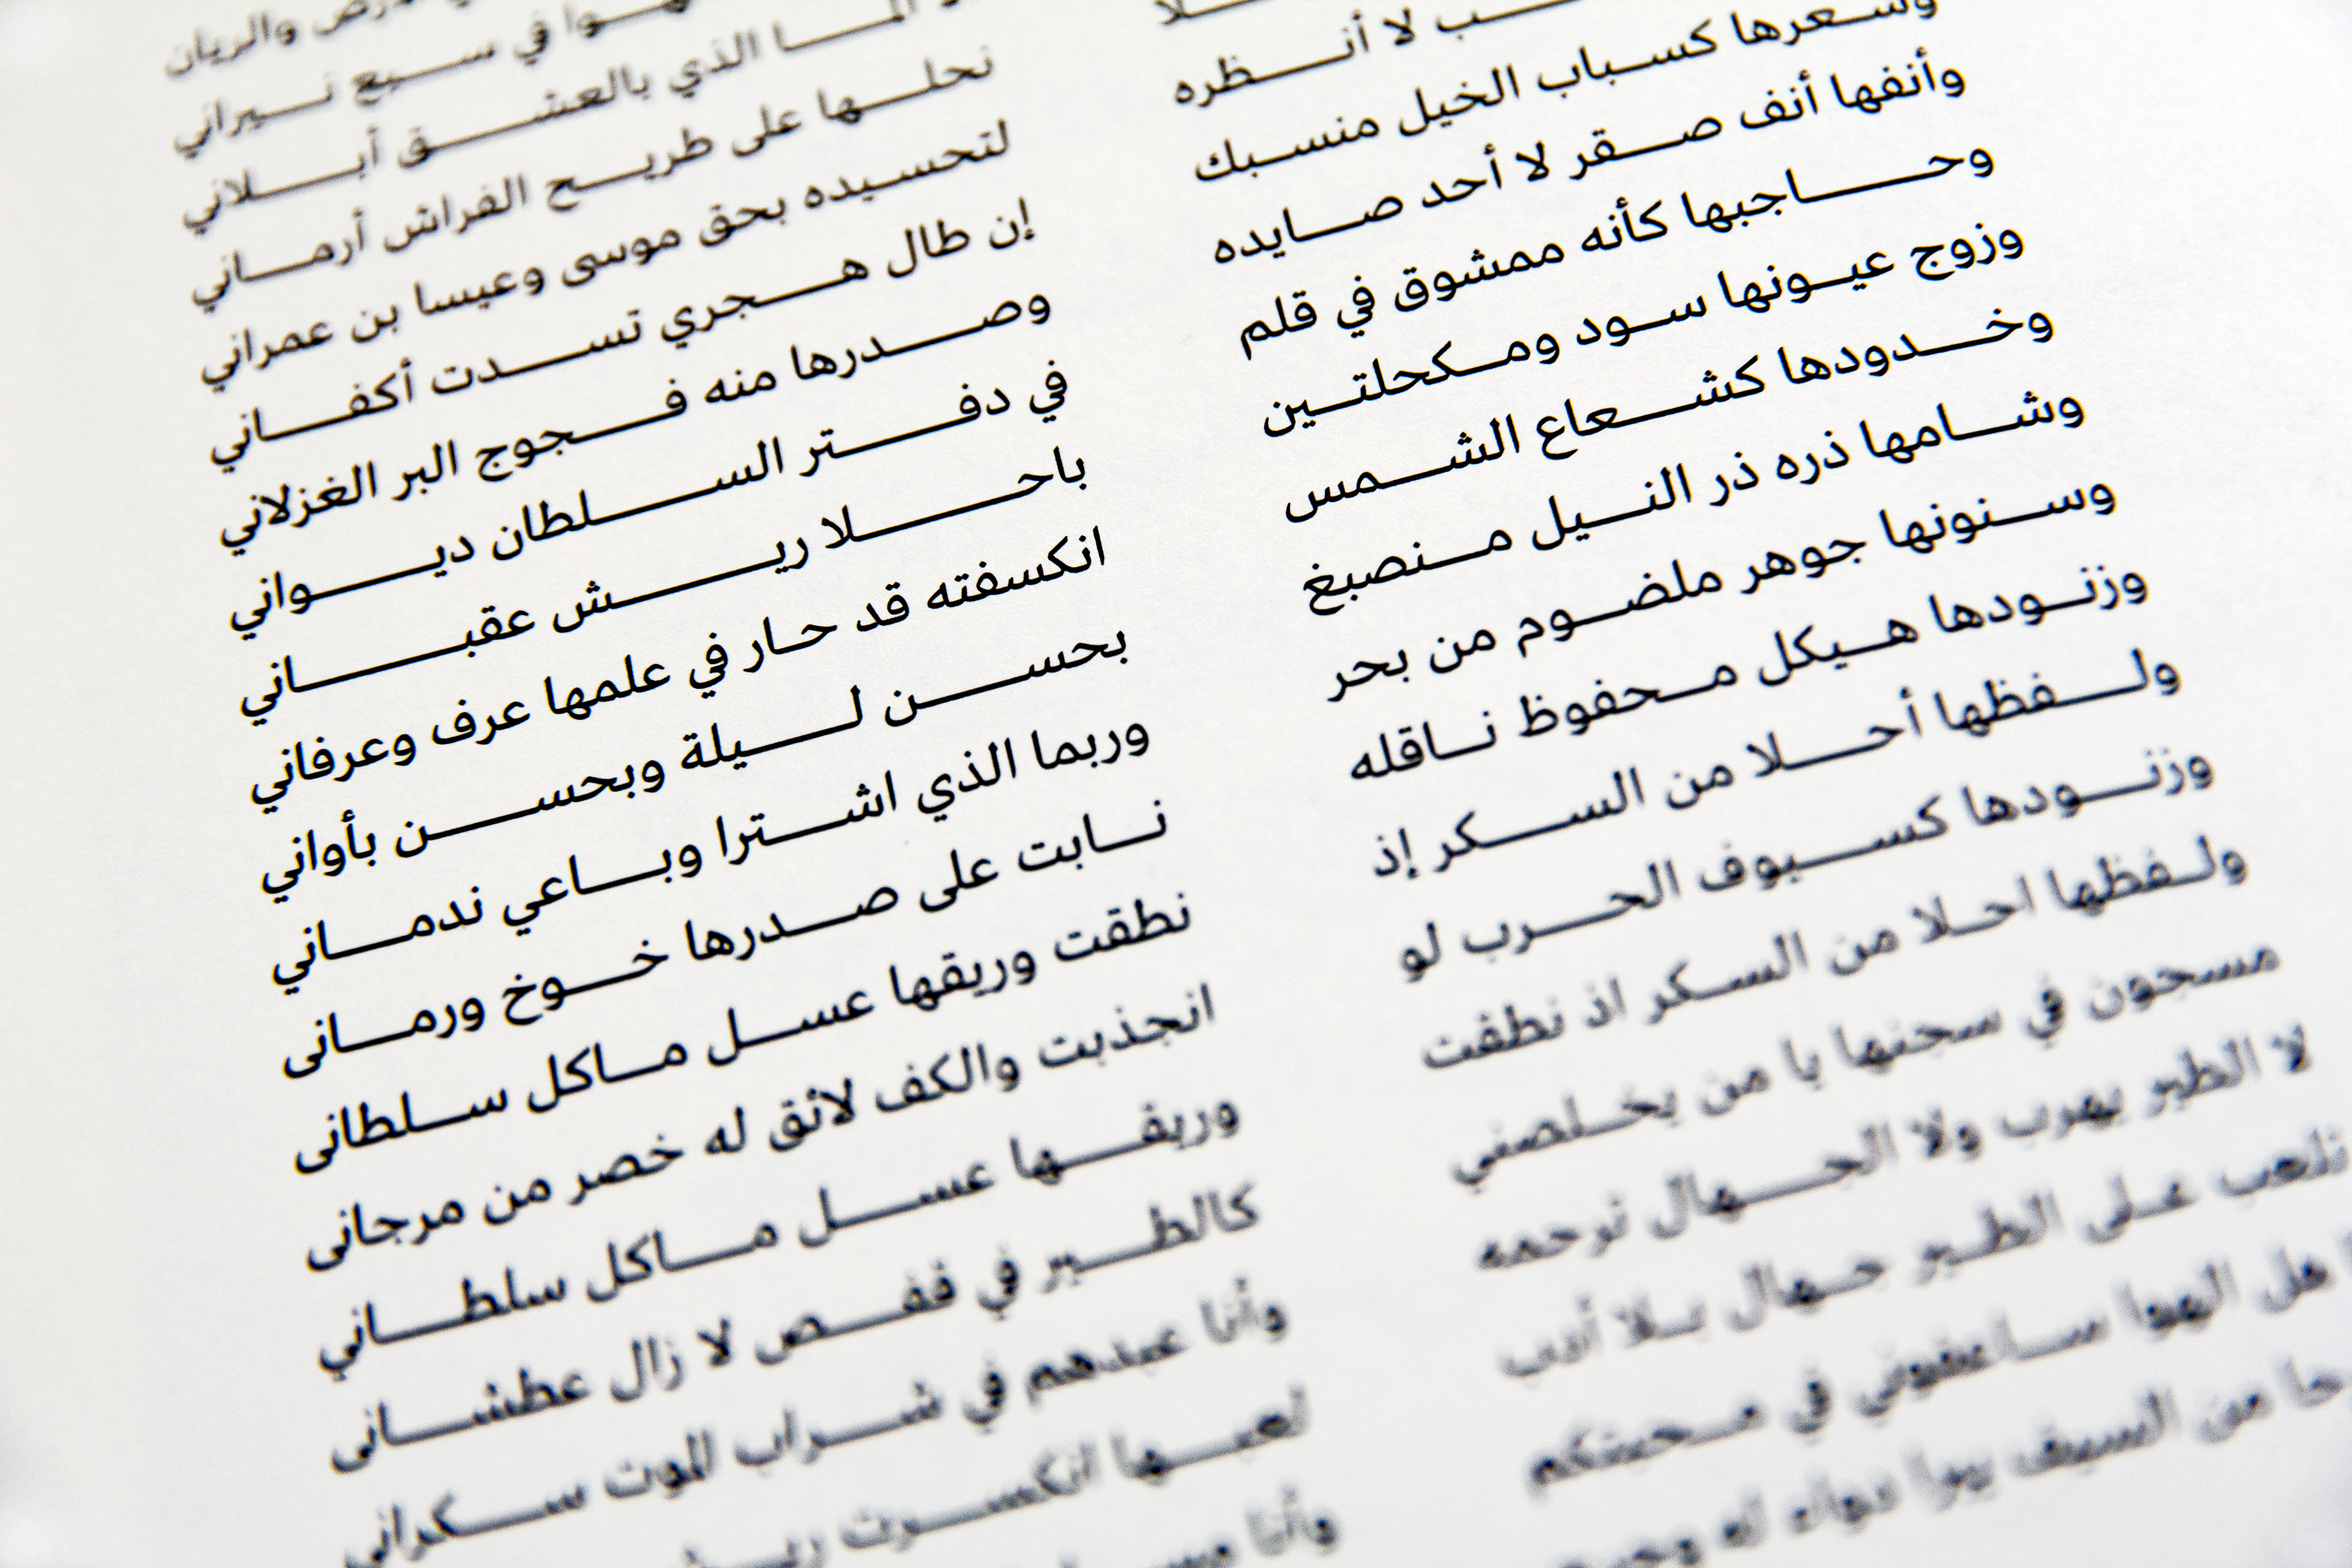 والريان
في سبع نيراني
الذي بالعشق أبلاني
نحلها على طريح الفراش أرماني
لا أنظره لتحسيده بحق موسى وعيسا بن عمراني
وشعرها كسباب الخيل منسبك إن طال هجري تسدت أكفاني
وأنفها أنف صقر لا أحد صايده وصدرها منه فجوج البر الغزلاني
وحاجبها كأنه ممشوق في قلم في دفتر السلطان ديواني
وزوج عيونها سود ومكحلتين باحلا ريش عقباني
وخدودها كشعاع الشمس انكسفته قد حار في علمها عرف وعرفاني
وشامها ذره ذر النيل منصبغ بحسن ليلة وبحسن بأواني
وسنونها جوهر ملضوم من بحر وربما الذي اشترا وباعي ندماني
وزنودها هيكل محفوظ ناقله نابت على صدرها خوخ ورمانى
ولفظها أحلا من السكر إذ نطقت وريقها عسل ماكل سلطانى
وزنودها كسيوف الحرب لو انجذبت والكف لائق له خصر من مرجانى
ولفظها احلا من السكر اذ نطقت وريقها عسل ماكل سلطاني
مسجون في سجنها يا من يخلصني كالطير في قفص لا زال عطشانى
لا الطير يهرب ولا الجهال ترحمه وأنا عبدهم في شراب الموت سكراني
تلعب على الطير جهال بلا أدب لعبها انكسرت
هل الهوا ساعفوني في محبتكم وأنا
من السيف